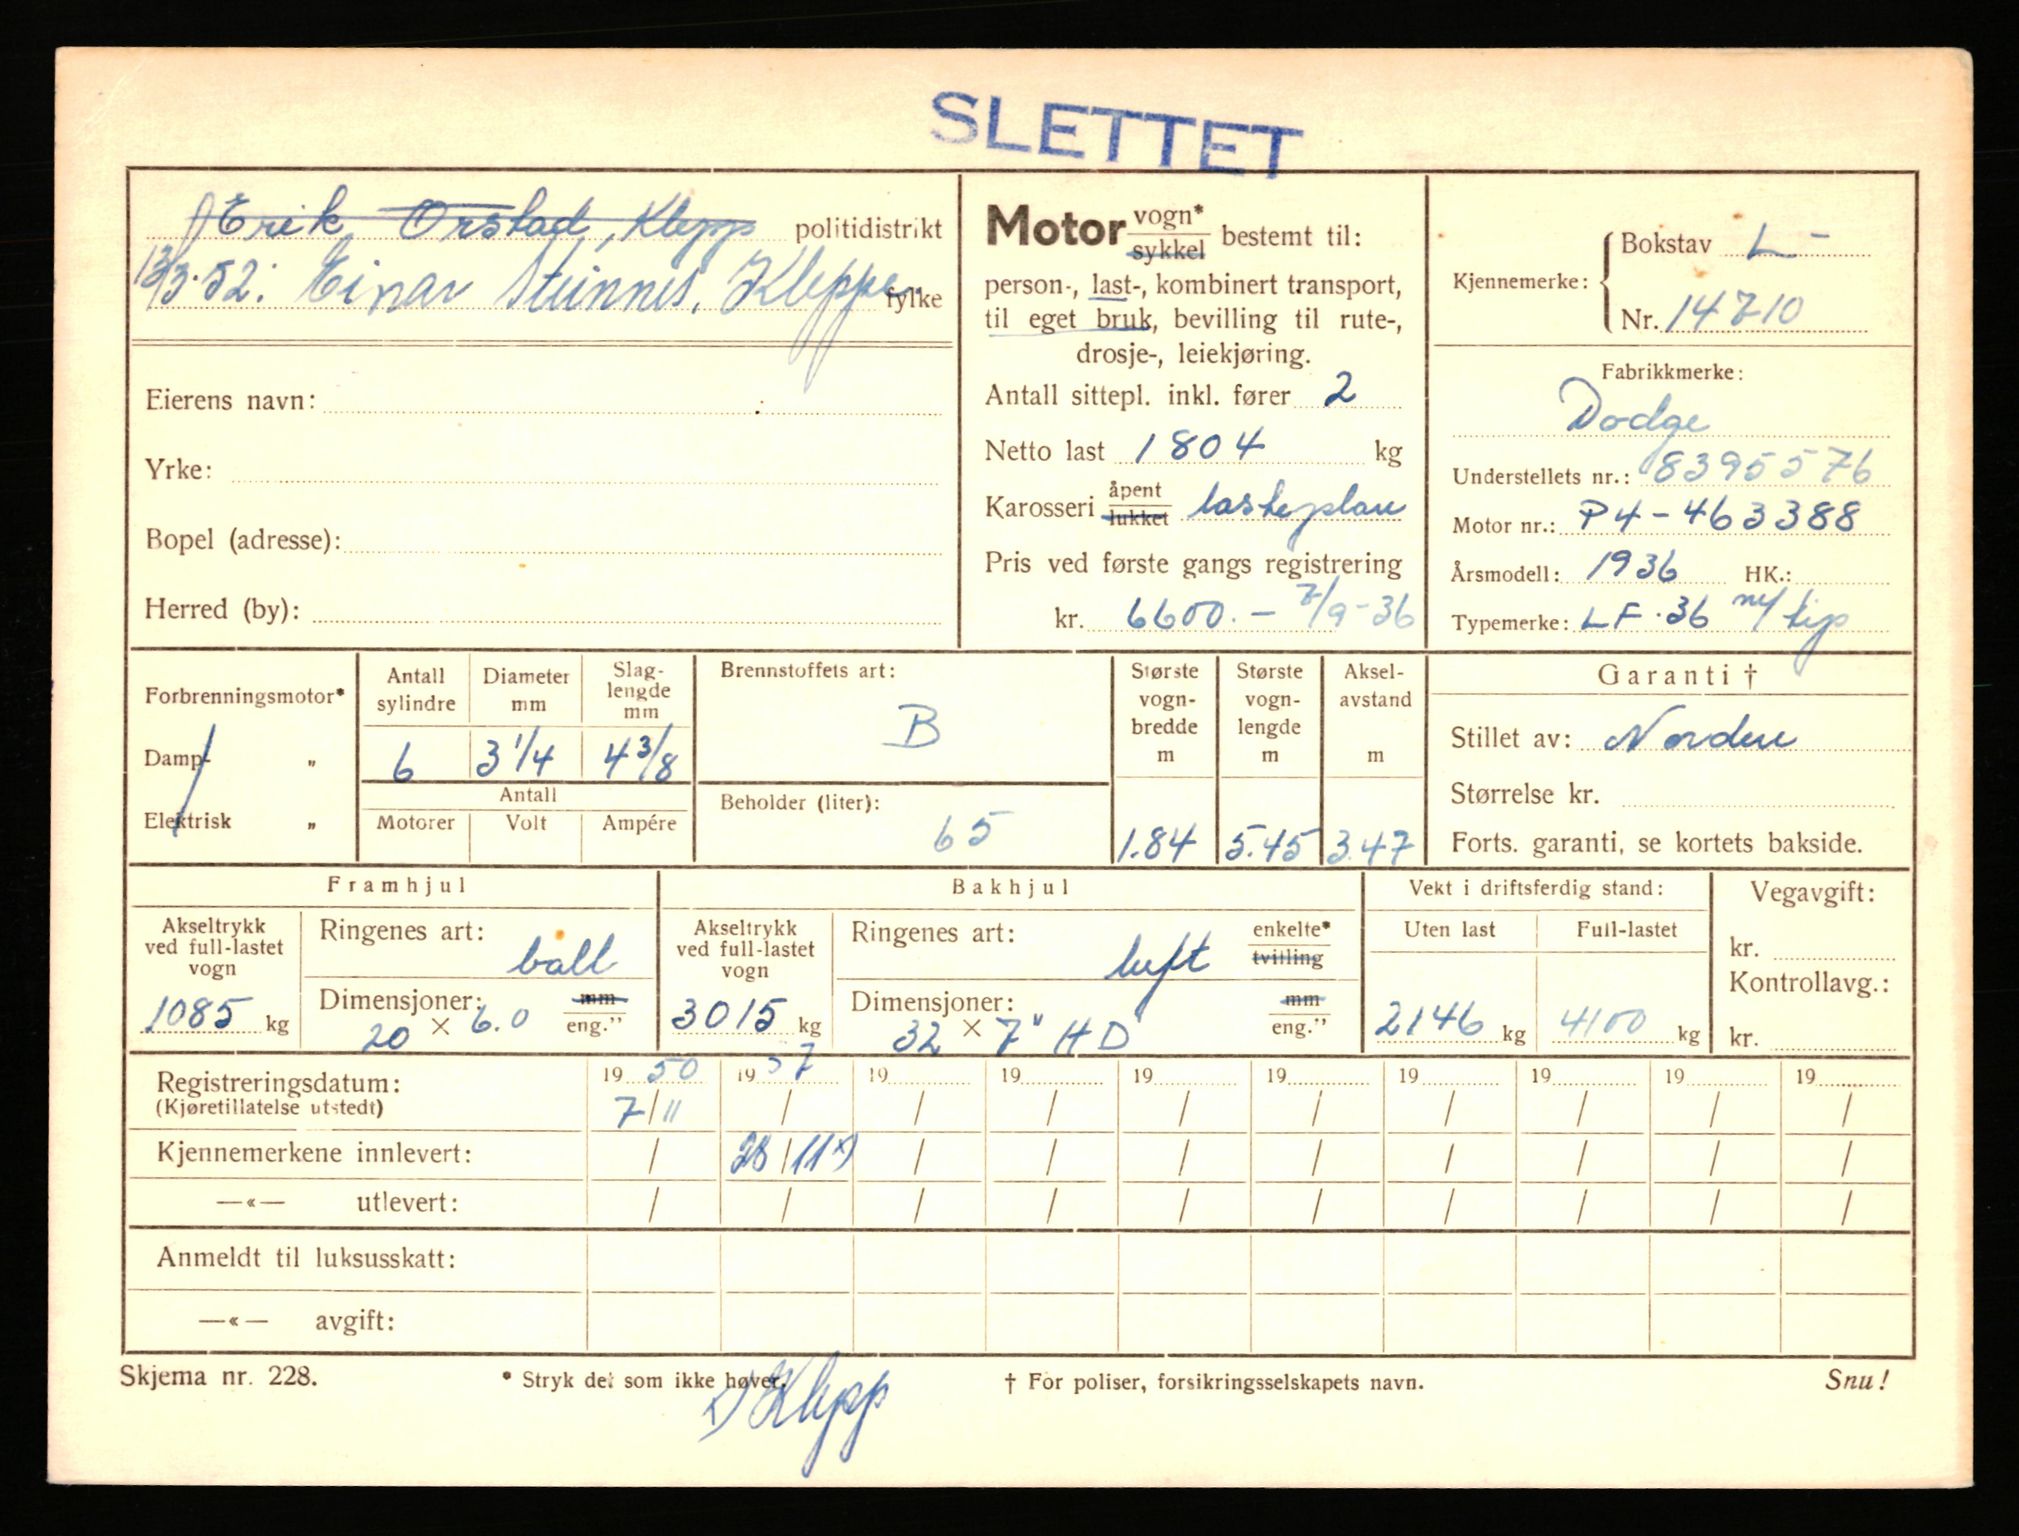 SLETTET
Erik Orstad, Klepp politidistrikt
13/3-52: Einar Steinnes, Kleppe. fylke
Eierens navn:
Yrke:
Bopel (adresse):
Herred (by):
Motor vogn* / sykkel bestemt til:
person-, last-, kombinert transport,
til eget bruk, bevilling til rute-,
drosje-, leiekjøring.
Antall sittepl. inkl. fører 2
Netto last 1804 kg
Karosseri åpent / lukket lasteplan
Pris ved første gangs registrering
kr. 6600.- 7/9-36
Kjennemerke: Bokstav L-
Nr. 14710
Fabrikkmerke:
Dodge
Understellets nr.: 8395576
Motor nr.: P4-463388
Årsmodell: 1936 HK.:
Typemerke: LF.36 m/tip
Forbrenningsmotor*
Damp- „
Elektrisk „
Antall sylindre 6
Diameter mm 3 1/4
Slaglengde mm 4 3/8
Antall
Motorer Volt Ampére
Brennstoffets art:
B
Beholder (liter):
65
Største vogn-bredde m 1.84
Største vogn-lengde m 5.45
Aksel-avstand m 3.47
Garanti †
Stillet av: Norden
Størrelse kr.
Forts. garanti, se kortets bakside.
Framhjul
Akseltrykk ved full-lastet vogn
1085 kg
Ringenes art: ball
Dimensjoner: mm
20 × 6.0 eng."
Bakhjul
Akseltrykk ved full-lastet vogn
3015 kg
Ringenes art: luft enkelte* / tvilling
Dimensjoner: mm
32 × 7" HD eng."
Vekt i driftsferdig stand:
Uten last Full-lastet
2146 kg 4100 kg
Vegavgift:
kr.
Kontrollavg.:
kr.
Registreringsdatum: 19 50 19 57 19 19 19 19 19 19 19 19
(Kjøretillatelse utstedt) 7/11 / / / / / / / / /
Kjennemerkene innlevert: / 28/11 x) / / / / / / / /
—«— utlevert: / / / / / / / / / /
Anmeldt til luksusskatt:
—«— avgift:
Skjema nr. 228. * Stryk det som ikke høver. † For poliser, forsikringsselskapets navn. Snu!
x) Klepp